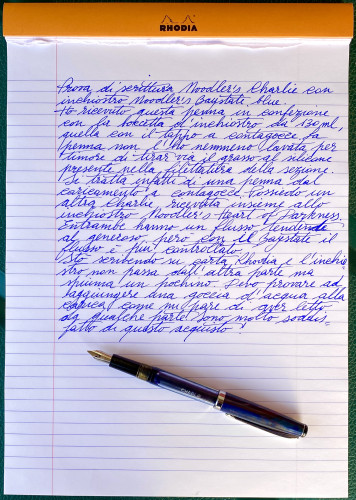 RHODIA
Prova di scrittura Noodler's Charlie con
inchiostro Noodler's Baystate blue.
Ho ricevuto questa penna in confezione
con la boccetta d'inchiostro da 130 ml,
quella con il tappo a contagocce. La
penna non l'ho nemmeno lavata per
timore di tirar via il grasso al silicone
presente nella filettatura della sezione.
Si tratta infatti di una penna dal
caricamento a contagocce. Possiedo un'
altra Charlie, ricevuta insieme allo
inchiostro Noodler's Heart of Darkness.
Entrambe hanno un flusso tendende
al generoso, però con il Baystate il
flusso è più controllato.
Sto scrivendo su carta Rhodia e l'inchio
stro non passa dall'altra parte ma
spiuma un pochino. Devo provare ad
aggiungere una goccia d'acqua alla
carica come mi pare di aver letto
da qualche parte. Sono molto soddis=
fatto di questo acquisto.